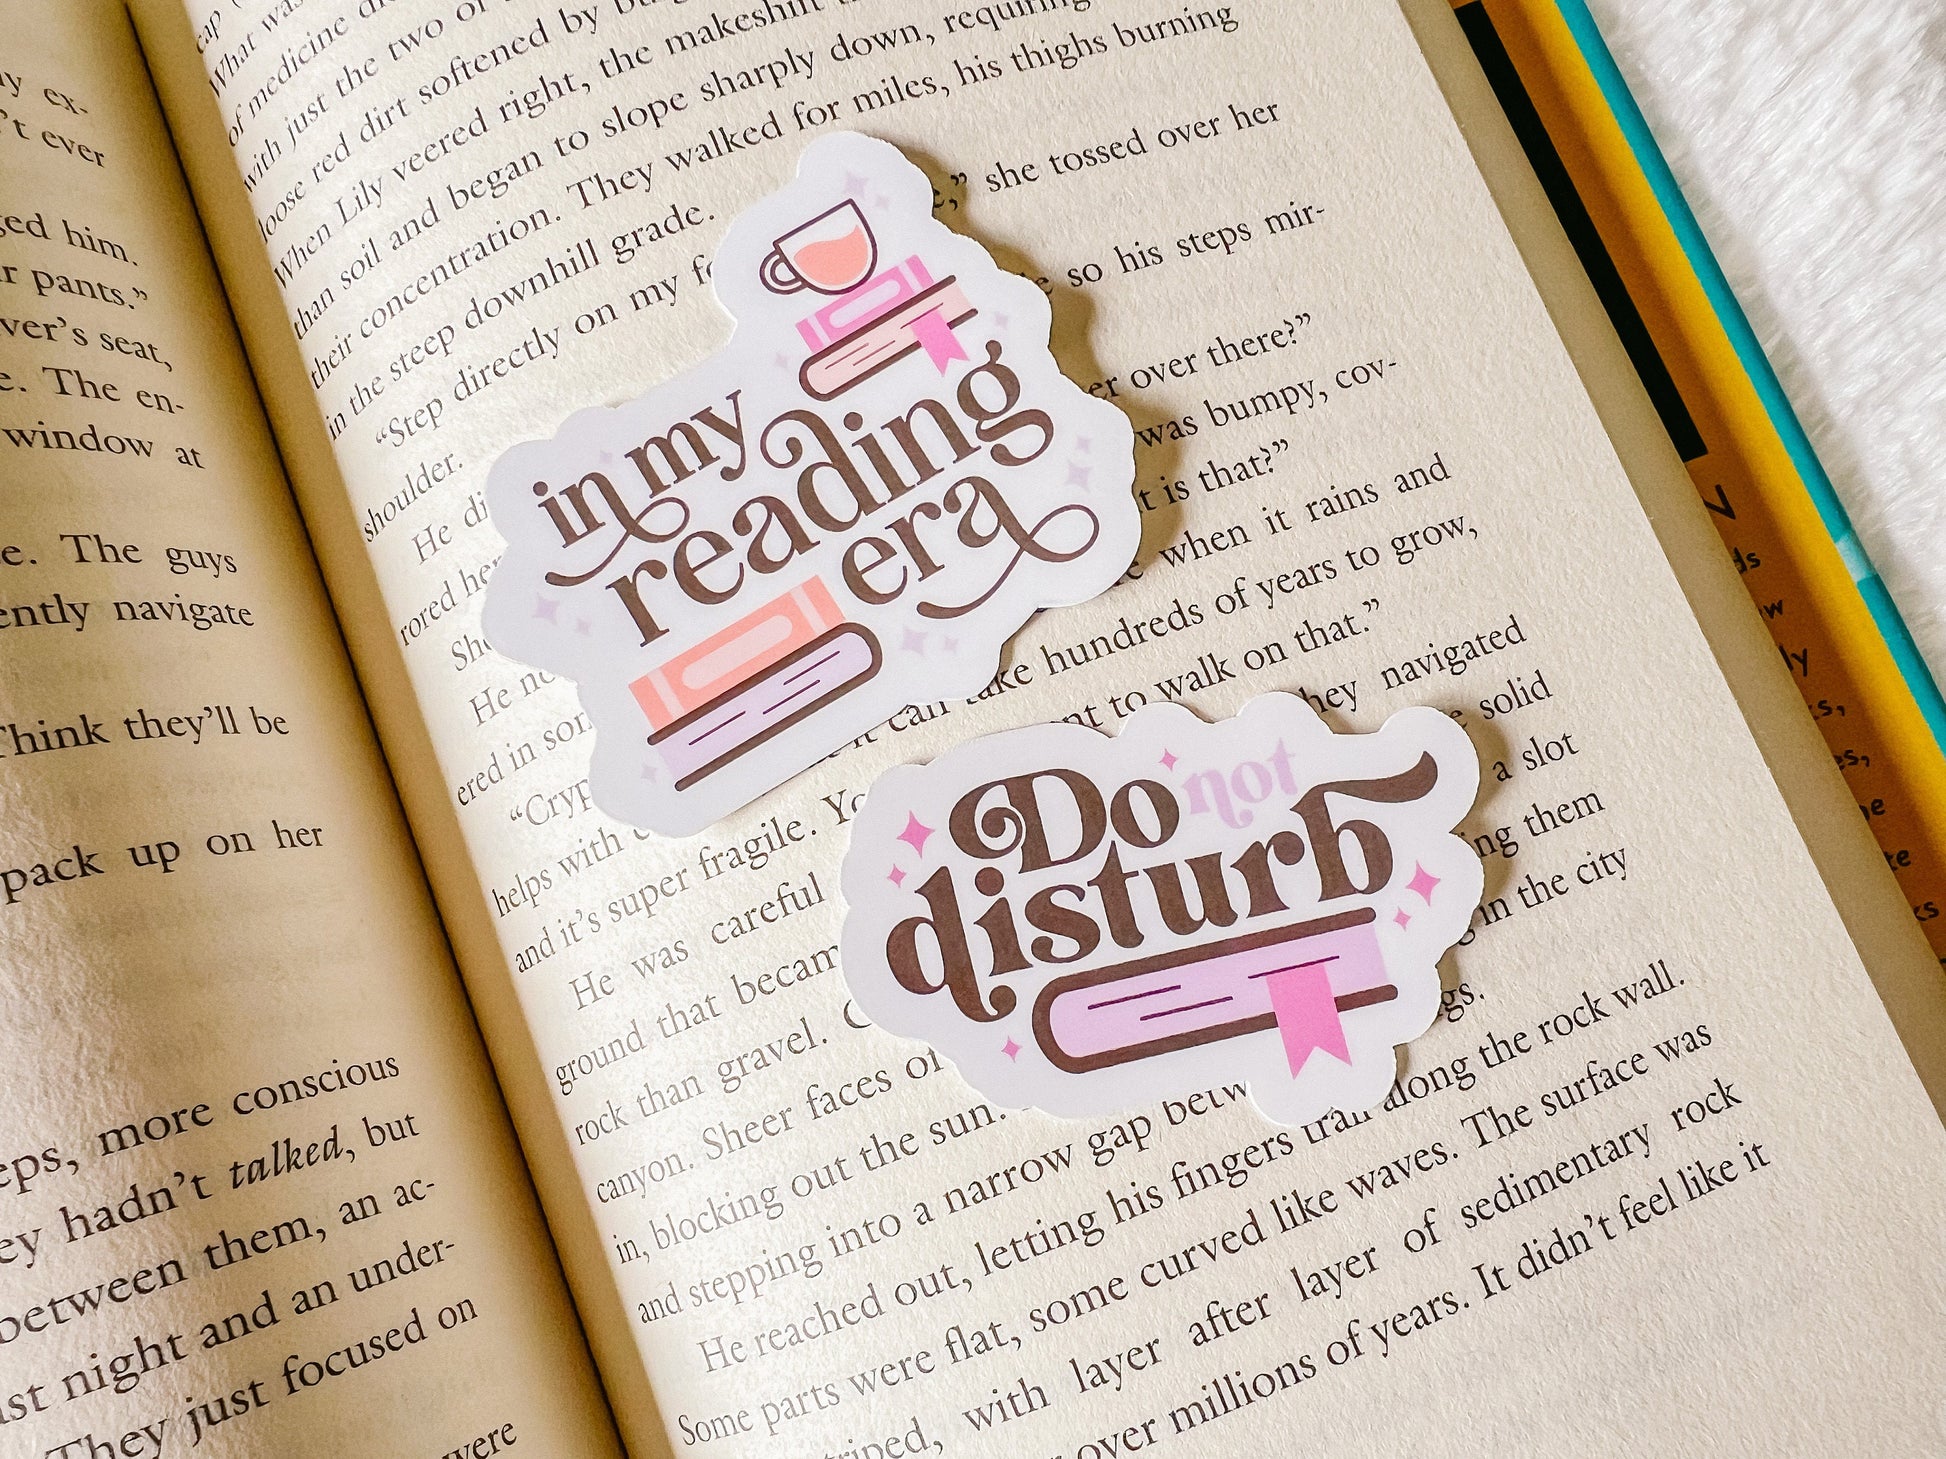 ly ex-
't ever
ged him.
r pants."
ver's seat,
e. The en-
window at
e. The guys
ently navigate
Think they'll be
pack up on her
eps, more conscious
ey hadn't talked, but
between them, an ac-
st night and an under-
They just focused on
were
cap
What was
of medicine
with just the two of
loose red dirt softened by
When Lily veered right, the makeshift
than soil and began to slope sharply down, requiring
their concentration. They walked for miles, his thighs burning
in the steep downhill grade.
"Step directly on my
," she tossed over her
shoulder.
He
so his steps mir-
rored her
She
er over there?"
He
was bumpy, cov-
ered in
t is that?"
"Cryp
when it rains and
helps with
can take hundreds of years to grow,
and it's super fragile.
to walk on that."
He was careful
they navigated
ground that became
solid
rock than gravel.
a slot
canyon. Sheer faces of
ing them
in, blocking out the sun.
in the city
and stepping into a narrow gap betw
gs.
He reached out, letting his fingers trail along the rock wall.
Some parts were flat, some curved like waves. The surface was
striped, with layer after layer of sedimentary rock
over millions of years. It didn't feel like it
in my
reading
era
Do not
disturb